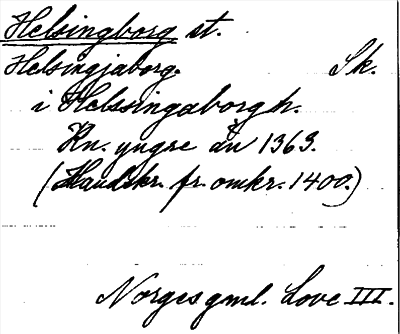 Helsingborg st.
Helsingjaborg. Sk.
i Helssingaborgh.
Kn. yngre än 1363.
(Handskr. fr. omkr. 1400.)
Norges gml. Love III.